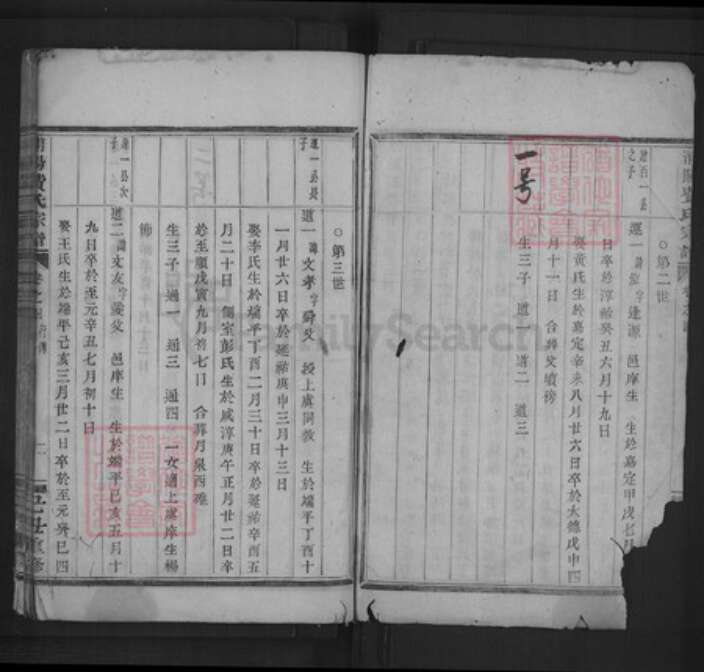 ○第二世
遜百一公之子
選一 諱 字逢源 邑庠生 生於嘉定甲戌七月
日卒於淳祐癸丑六月十九日
娶黃氏生於嘉定辛未八月廿六日卒於大德戊申四
月十一日 合葬父墳傍
生三子 道一 道二 道三
一号
○第三世
選一公長子
道一 諱文孝 字舜父 授上虞同教 生於端平丁酉十
一月廿六日卒於延祐庚申三月十三日
娶李氏生於端平丁酉二月三十日卒於延祐辛酉五
月二十日 側室彭氏生於咸淳庚午正月廿二日卒
於至順戊寅九月初七日 合葬月泉西雄
生三子 通一 通三 通四 一女適上虞庠生楊
佛
選一公次
道二 諱文友 字 父 邑庠生 生於端平己亥五月十
九日卒於至元辛丑七月初十日
娶王氏生於端平己亥三月廿二日卒於至元癸巳四
費氏宗譜
FamilySearch